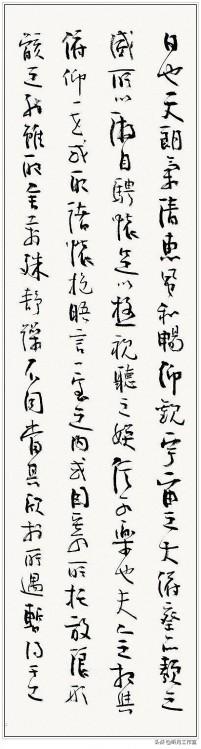 日也天朗氣清惠風和暢仰觀宇宙之大俯察品類之
盛所以遊目騁懷足以極視聽之娛信可樂也夫人之相與
俯仰一世或取諸懷抱晤言一室之內或因寄所托放浪形
骸之外雖取舍萬殊靜躁不同當其欣於所遇暫得於己
头条@明月工作室